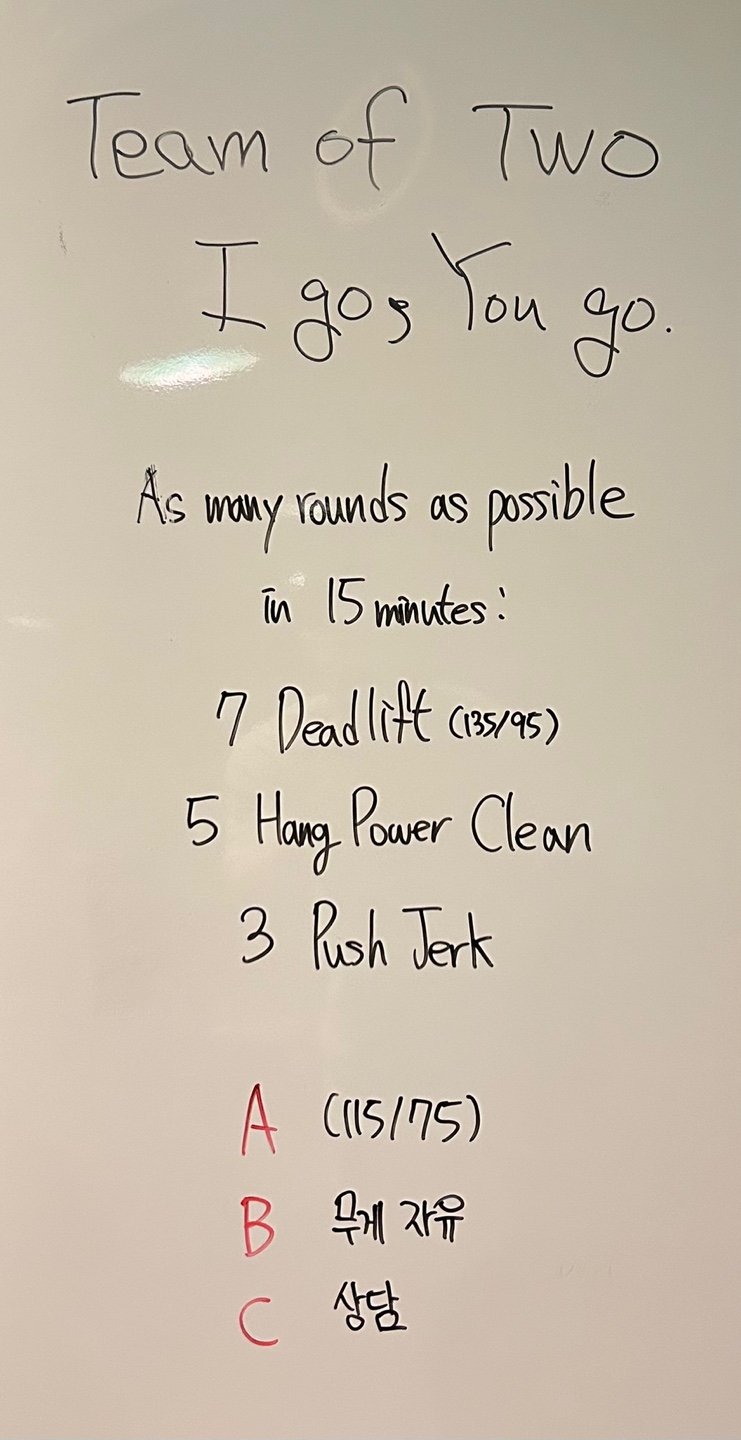 Team of Two
I go, You go.
As many rounds as possible
in 15 minutes:
7 Deadlift (135/95)
5 Hang Power Clean
3 Push Jerk
A (115/75)
B 무게 자유
C 상담